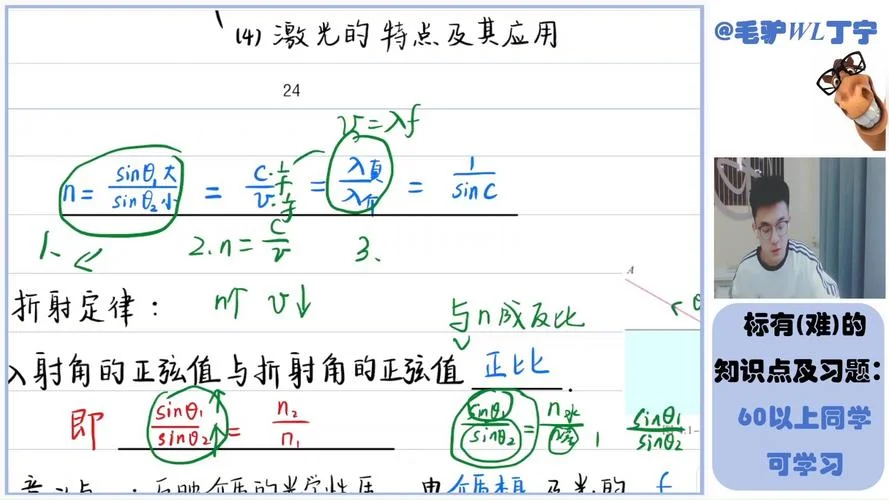 (4) 激光的特点及其应用
24
v=λf
n= sinθ₁大/sinθ₂小 = c·1/f / v·1/f = λ真/λ介 = 1/sinC
1. 2. n=c/v 3.
折射定律： n↑ v↓
与n成反比
入射角的正弦值与折射角的正弦值 正比.
即 sinθ₁/sinθ₂ = n₂/n₁ sinθ₁/sinθ₂ = n水/ 1 sinθ₁/sinθ₂
A
@毛驴WL丁宁
标有(难)的
知识点及习题:
60以上同学
可学习